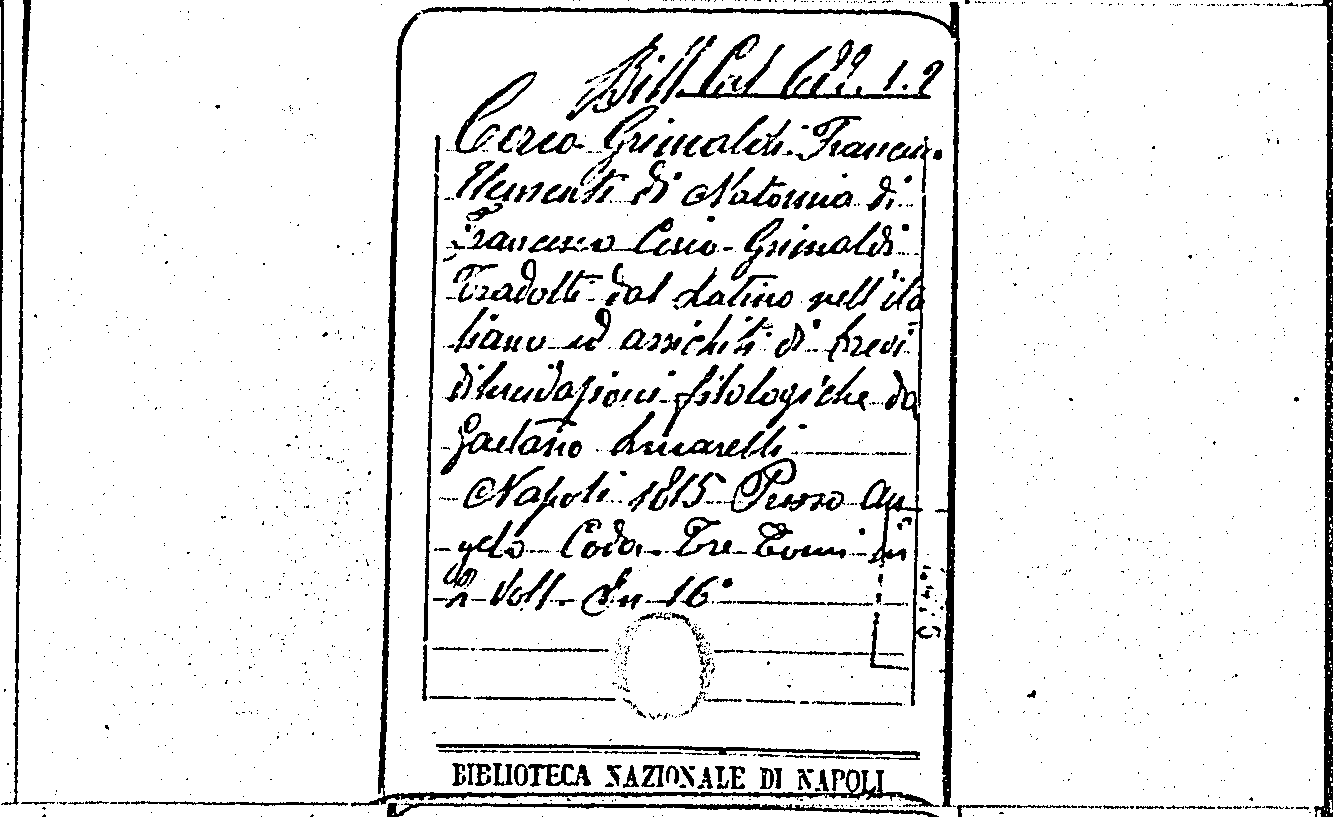 Bibl. Cal 622. 1. 2
Cerio Grimaldi Francesco.
Elementi di Notomia di
Francesco Cerio-Grimaldi
Tradotti dal Latino nell'ita
liano ed arrichiti di brevi
dilucidazioni filologiche da
Gaetano Lucarelli
Napoli 1815 Presso An
gelo Coda. Tre Tomi in
2 Voll. In 16°
BIBLIOTECA NAZIONALE DI NAPOLI